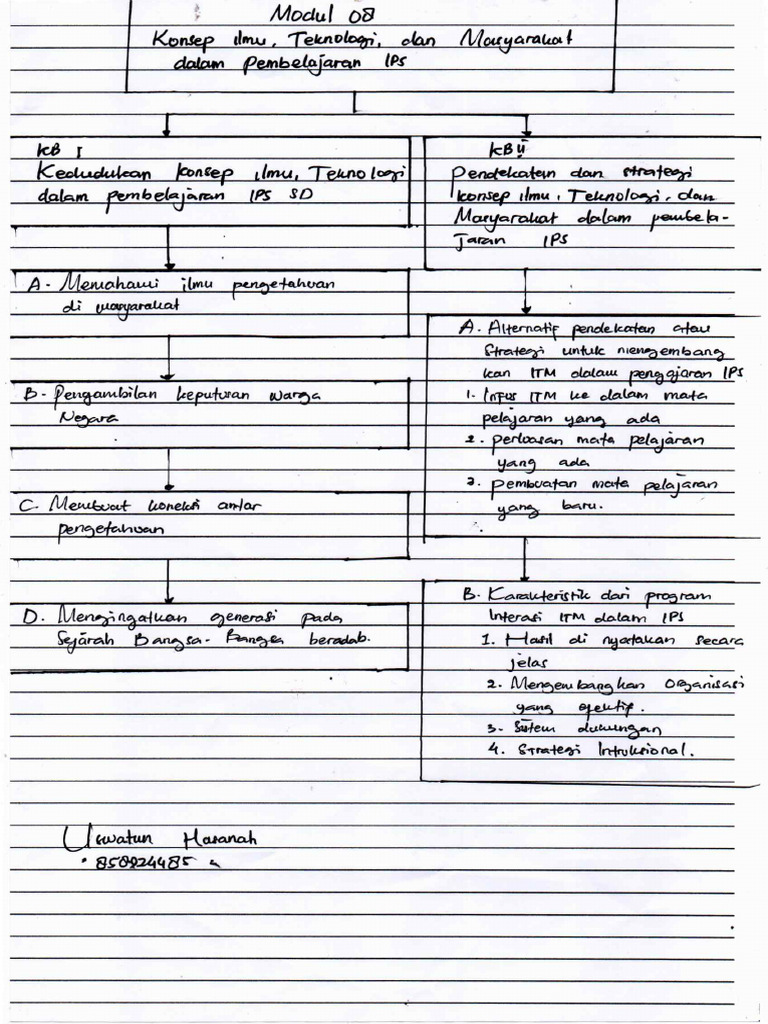 Modul 08
Konsep ilmu, Teknologi, dan Masyarakat
dalam pembelajaran IPS
KB I
Kedudukan konsep ilmu, Teknologi
dalam pembelajaran IPS SD
A. Memahami ilmu pengetahuan
di masyarakat
B. Pengambilan keputusan warga
Negara
C. Membuat koneksi antar
pengetahuan
D. Mengingatkan generasi pada
Sejarah Bangsa-Bangsa beradab.
KB II
Pendekatan dan strategi
konsep ilmu, Teknologi, dan
Masyarakat dalam pembela-
jaran IPS
A. Alternatif pendekatan atau
strategi untuk mengembang
kan ITM dalam pengajaran IPS
1. Infus ITM ke dalam mata
pelajaran yang ada
2. perluasan mata pelajaran
yang ada
3. pembuatan mata pelajaran
yang baru.
B. Karakteristik dari program
Interasi ITM dalam IPS
1. Hasil di nyatakan secara
jelas
2. Mengembangkan organisasi
yang efektif.
3. Sistem dukungan
4. Strategi Intruksional.
Uswatun Hasanah
858924485